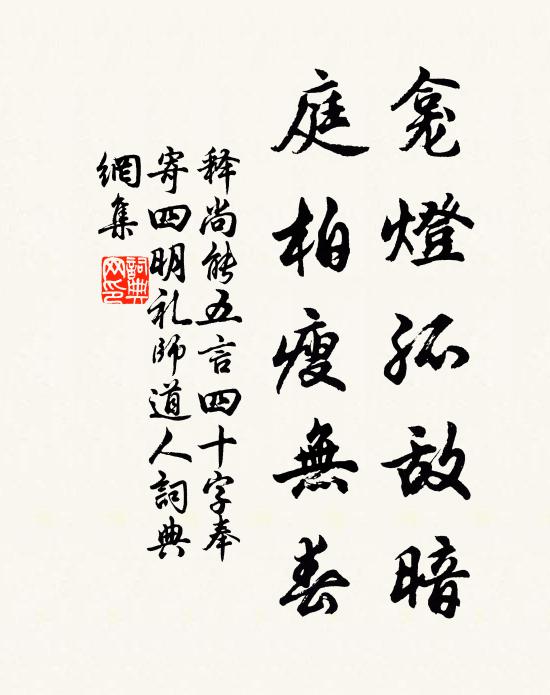 龛燈孤敌暗
庭柏瘦無春
释尚能五言四十字奉
寄四明礼師道人詞典
網集
詞典網印